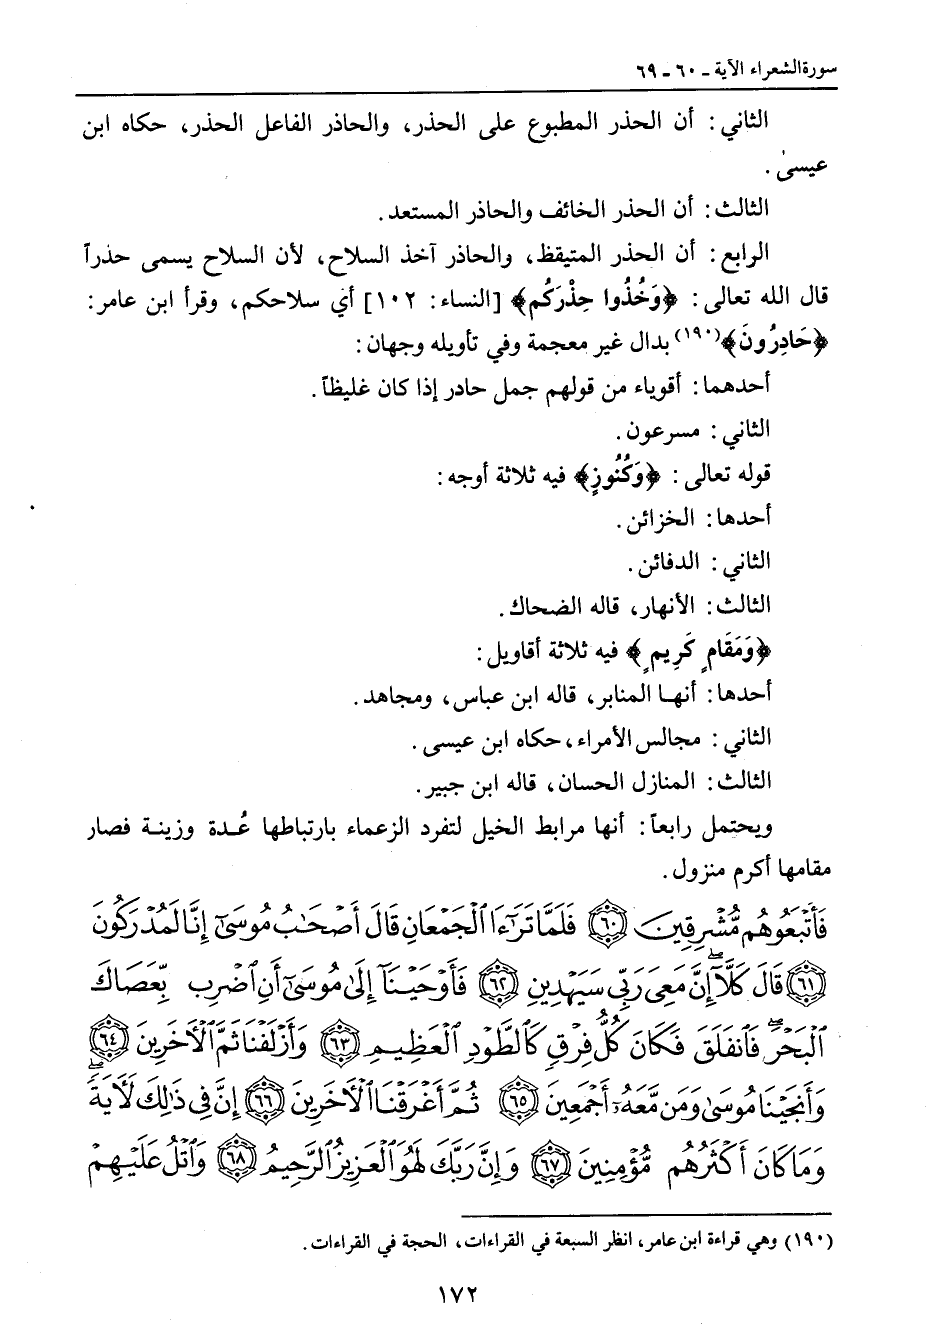 سورة الشعراء الآية ـ ٦٠ ـ ٦٩
الثاني: أن الحذر المطبوع على الحذر، والحاذر الفاعل الحذر، حكاه ابن
عيسىٰ.
الثالث: أن الحذر الخائف والحاذر المستعد.
الرابع: أن الحذر المتيقظ، والحاذر آخذ السلاح، لأن السلاح يسمى حذراً
قال الله تعالى: ﴿وَخُذُوا حِذْرَكُم﴾ [النساء: ١٠٢] أي سلاحكم، وقرأ ابن عامر:
﴿حَادِرُونَ﴾(١٩٠) بدال غير معجمة وفي تأويله وجهان:
أحدهما: أقوياء من قولهم جمل حادر إذا كان غليظاً.
الثاني: مسرعون.
قوله تعالى: ﴿وَكُنُوزٍ﴾ فيه ثلاثة أوجه:
أحدها: الخزائن.
الثاني: الدفائن.
الثالث: الأنهار، قاله الضحاك.
﴿وَمَقَامٍ كَرِيمٍ﴾ فيه ثلاثة أقاويل:
أحدها: أنهـا المنابر، قاله ابن عباس، ومجاهد.
الثاني: مجالس الأمراء، حكاه ابن عيسى.
الثالث: المنازل الحسان، قاله ابن جبير.
ويحتمل رابعاً: أنها مرابط الخيل لتفرد الزعماء بارتباطها عُـدة وزينـة فصار
مقامها أكرم منزول.
فَأَتْبَعُوهُم مُّشْرِقِينَ ﴿٦٠﴾ فَلَمَّا تَرَٰٓءَا ٱلْجَمْعَانِ قَالَ أَصْحَٰبُ مُوسَىٰٓ إِنَّا لَمُدْرَكُونَ
﴿٦١﴾ قَالَ كَلَّآ ۖ إِنَّ مَعِىَ رَبِّى سَيَهْدِينِ ﴿٦٢﴾ فَأَوْحَيْنَآ إِلَىٰ مُوسَىٰٓ أَنِ ٱضْرِب بِّعَصَاكَ
ٱلْبَحْرَ ۖ فَٱنفَلَقَ فَكَانَ كُلُّ فِرْقٍ كَٱلطَّوْدِ ٱلْعَظِيمِ ﴿٦٣﴾ وَأَزْلَفْنَا ثَمَّ ٱلْأَخَرِينَ ﴿٦٤﴾
وَأَنجَيْنَا مُوسَىٰ وَمَن مَّعَهُۥٓ أَجْمَعِينَ ﴿٦٥﴾ ثُمَّ أَغْرَقْنَا ٱلْأَخَرِينَ ﴿٦٦﴾ إِنَّ فِى ذَٰلِكَ لَأَيَةً ۖ
وَمَا كَانَ أَكْثَرُهُم مُّؤْمِنِينَ ﴿٦٧﴾ وَإِنَّ رَبَّكَ لَهُوَ ٱلْعَزِيزُ ٱلرَّحِيمُ ﴿٦٨﴾ وَٱتْلُ عَلَيْهِمْ
(١٩٠) وهي قراءة ابن عامر، انظر السبعة في القراءات، الحجة في القراءات.
١٧٢